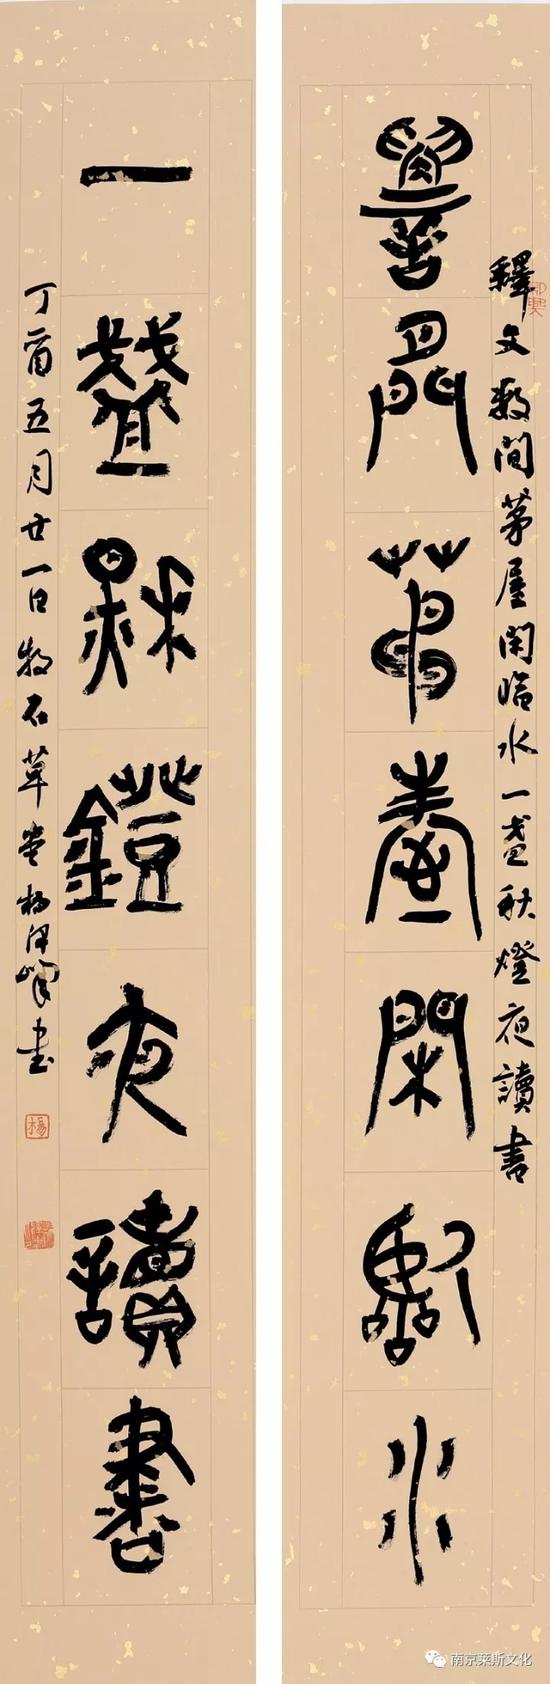 釋文數間茅屋閑臨水一盞秋燈夜讀書
數間茅屋閑臨水
一盞秋燈夜讀書
丁酉五月廿一日牧石草堂楊書
楊
南京莱斯文化